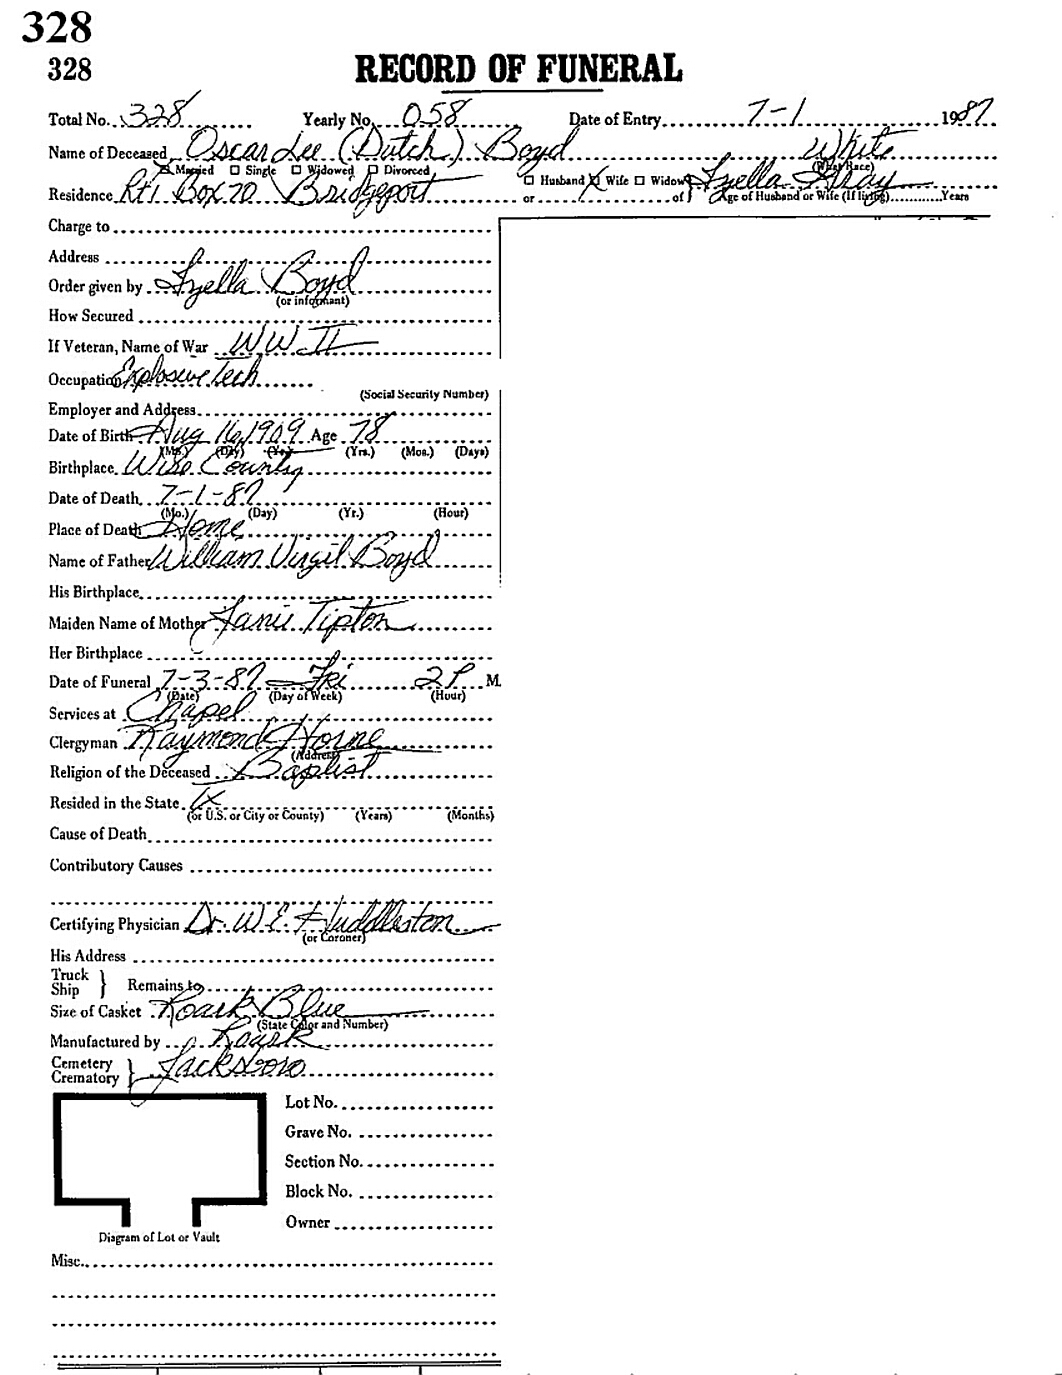 328
328
RECORD OF FUNERAL
Total No. 328 Yearly No. 058 Date of Entry 7-1 1987
Name of Deceased Oscar Lee (Dutch) Boyd White
Married Single Widowed Divorced (What Race)
Residence Rt 1 Box 70 Bridgeport Husband or Wife Widow of Gray Age of Husband or Wife (If living) Years
Charge to
Address
Order given by Boyd
(or informant)
How Secured
If Veteran, Name of War WW II
Occupation Explosive Tech
(Social Security Number)
Employer and Address
Date of Birth Aug 16, 1909 Age 78
(Mo.) (Day) (Yr.) (Yrs.) (Mos.) (Days)
Birthplace Wise County
Date of Death 7-1-87
(Mo.) (Day) (Yr.) (Hour)
Place of Death Home
Name of Father William Virgil Boyd
His Birthplace
Maiden Name of Mother Janie Tipton
Her Birthplace
Date of Funeral 7-3-87 Fri 2 P M.
(Date) (Day of Week) (Hour)
Services at Chapel
Clergyman Raymond Horne
(Address)
Religion of the Deceased Baptist
Resided in the State Tx
(or U.S. or City or County) (Years) (Months)
Cause of Death
Contributory Causes
Certifying Physician Dr. W.E. Huddleston
(or Coroner)
His Address
Truck Ship } Remains to
Size of Casket Roark Blue
(State Color and Number)
Manufactured by Roark
Cemetery Crematory } Jacksboro
Lot No.
Grave No.
Section No.
Block No.
Owner
Diagram of Lot or Vault
Misc.